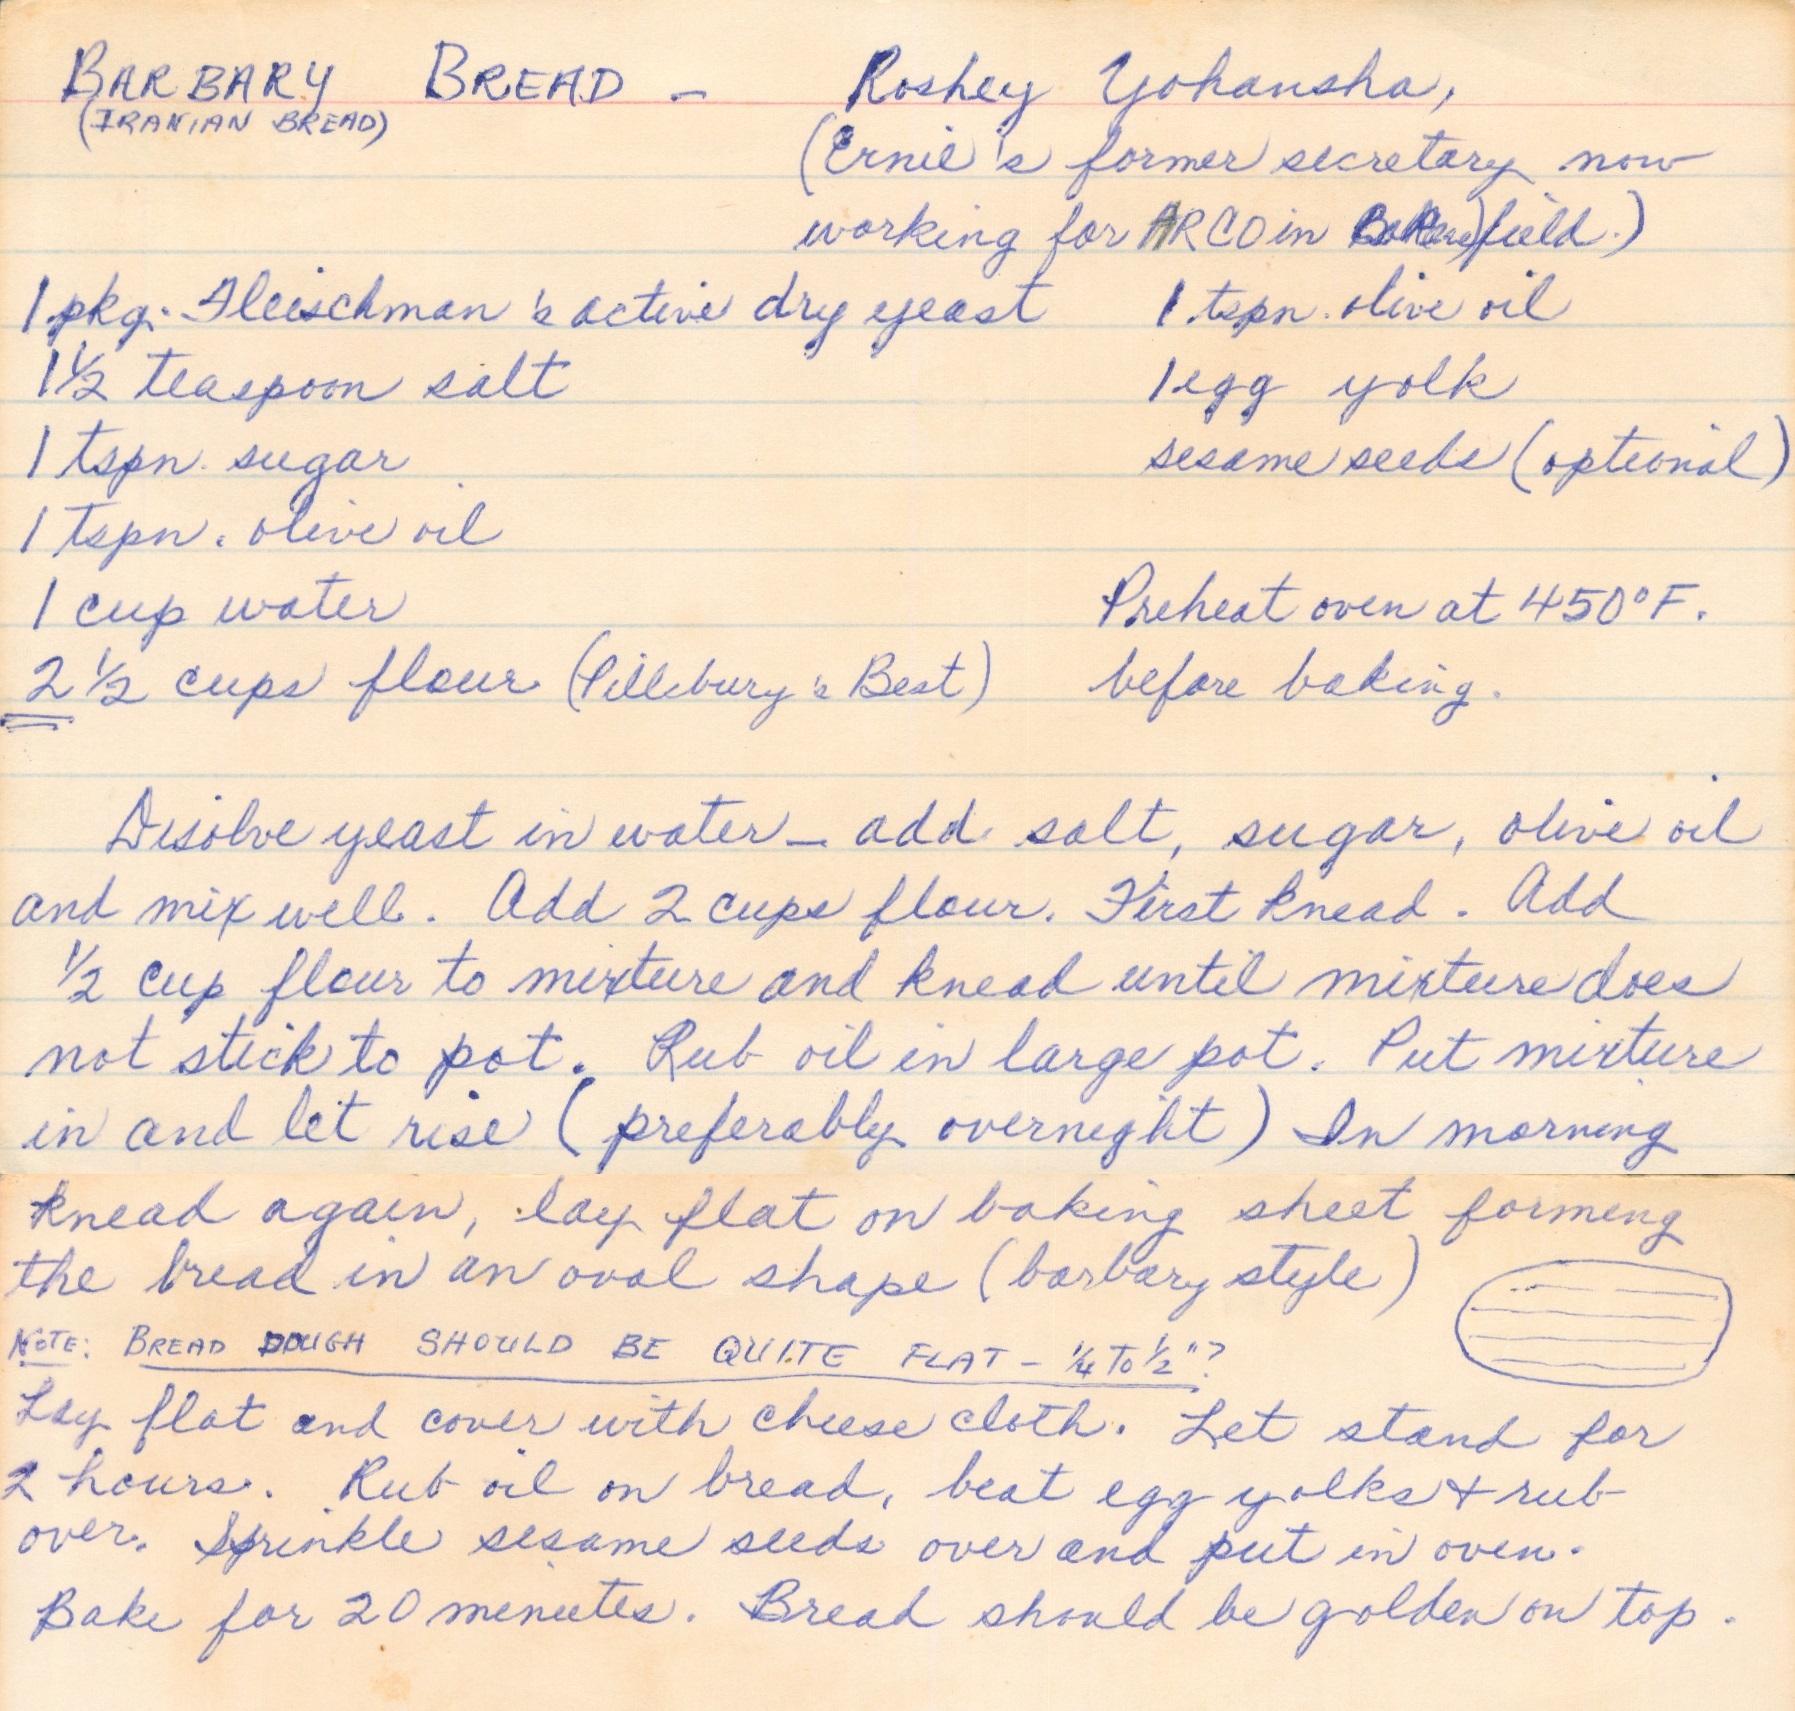 BARBARY BREAD - Roshey Yohansha,
(IRANIAN BREAD)
(Ernie's former secretary now
working for ARCO in Bakersfield.)
1 pkg. Fleischman's active dry yeast
1 1/2 teaspoon salt
1 tspn. sugar
1 tspn. olive oil
1 cup water
2 1/2 cups flour (Pillsbury's Best)
1 tspn. olive oil
1 egg yolk
sesame seeds (optional)
Preheat oven at 450°F.
before baking.
Disolve yeast in water - add salt, sugar, olive oil
and mix well. Add 2 cups flour. First knead. Add
1/2 cup flour to mixture and knead until mixture does
not stick to pot. Rub oil in large pot. Put mixture
in and let rise (preferably overnight) In morning
knead again, lay flat on baking sheet forming
the bread in an oval shape (barbary style)
NOTE: BREAD DOUGH SHOULD BE QUITE FLAT - 1/4 TO 1/2"?
Lay flat and cover with cheese cloth. Let stand for
2 hours. Rub oil on bread, beat egg yolks + rub
over. Sprinkle sesame seeds over and put in oven.
Bake for 20 minutes. Bread should be golden on top.